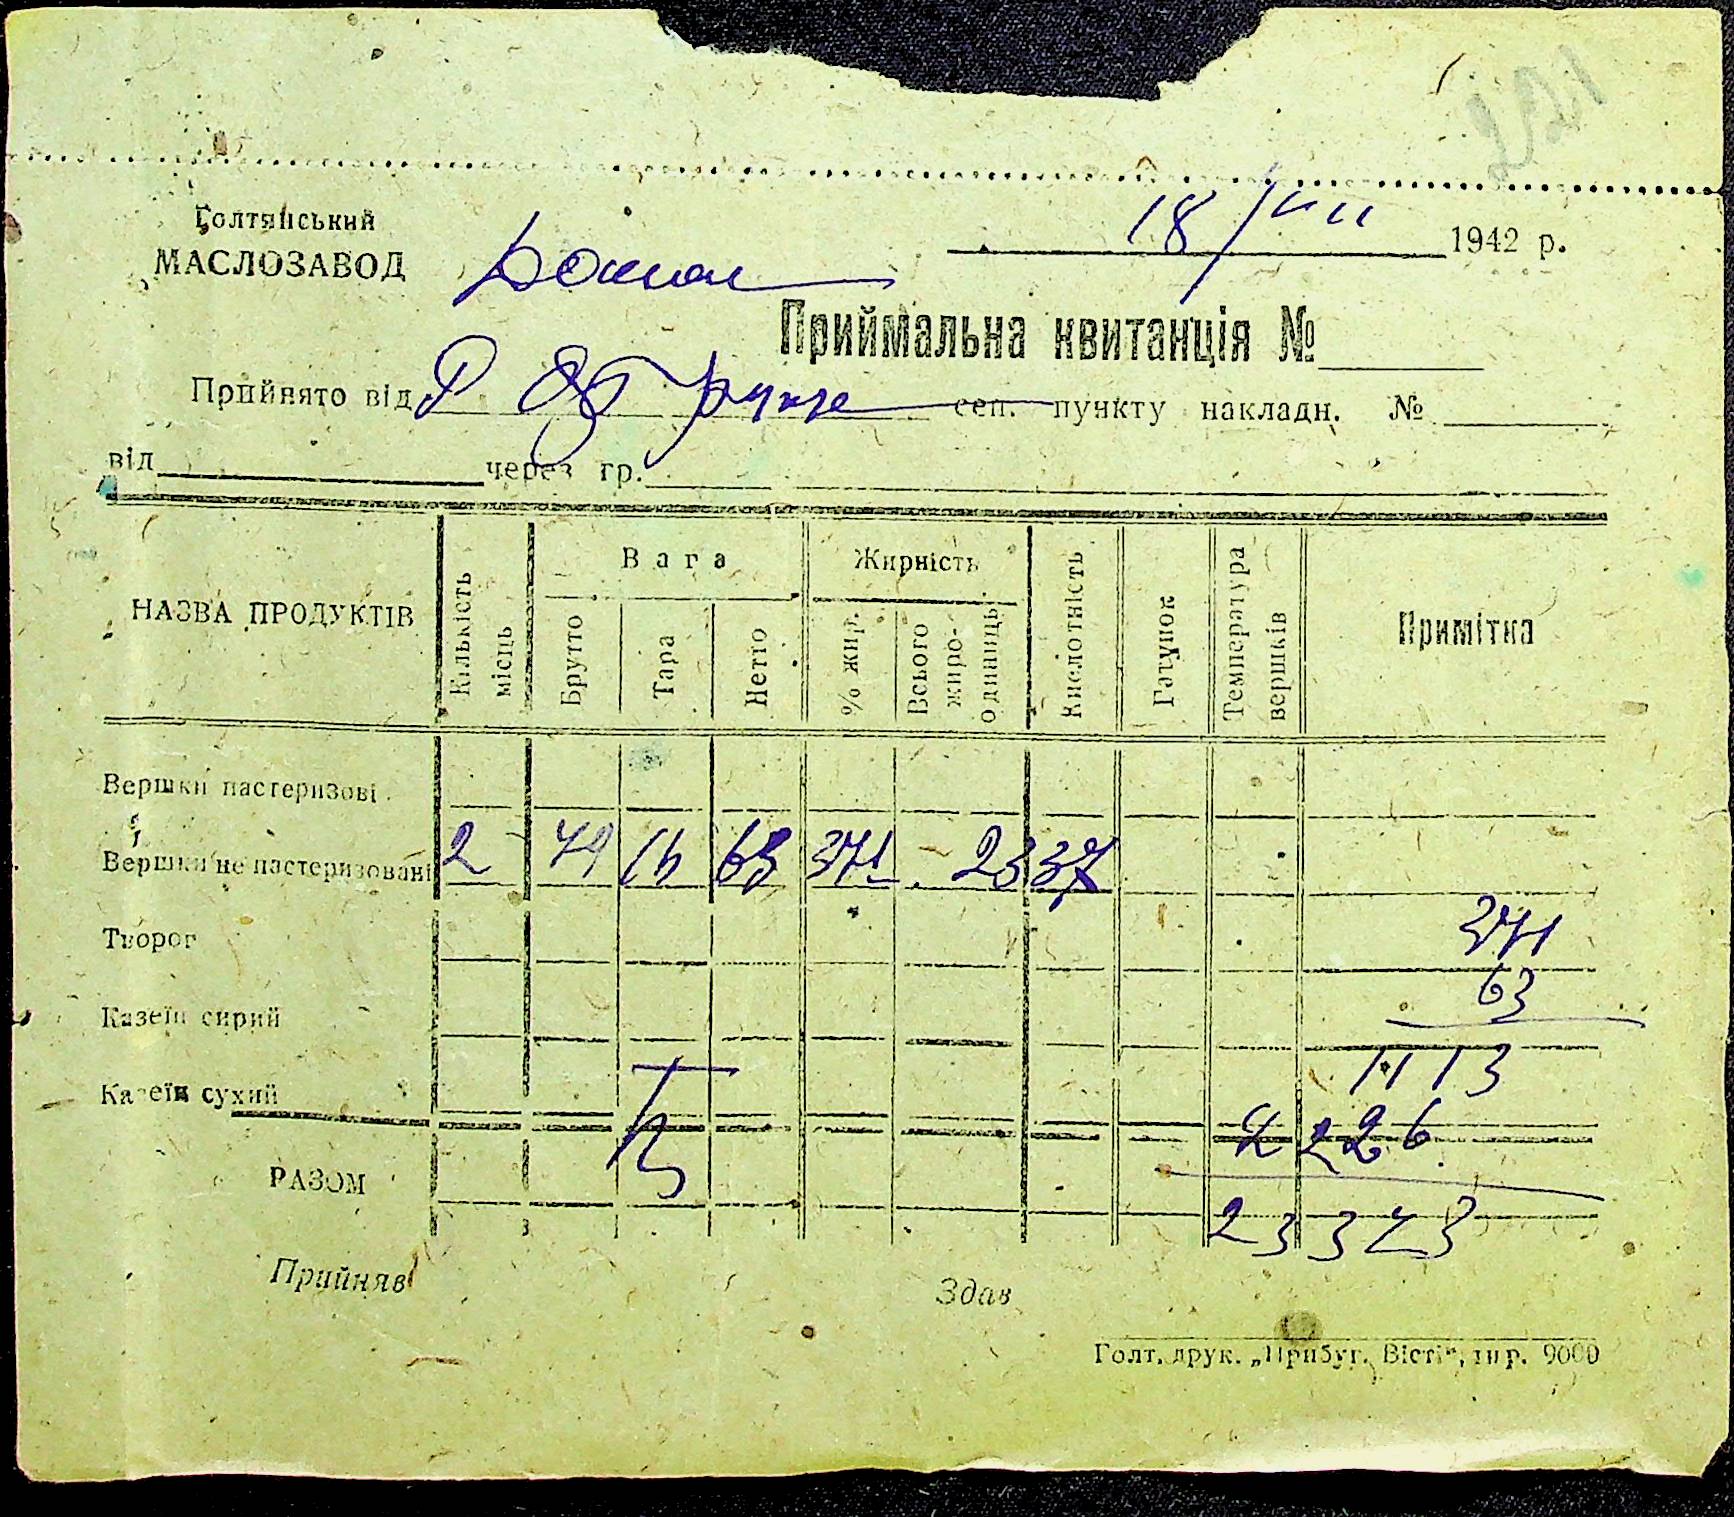 221
Голтянський
МАСЛОЗАВОД
18/VIII 1942 р.
Приймальна квитанція №
Прийнято від сеп. пункту накладн. №
від через гр.
НАЗВА ПРОДУКТІВ Кількість місць Вага Жирність Кислотність Гатунок Температура вершків Примітка
Брутто Тара Нетто % жир. Всього жиро-одиниць
Вершки пастеризові
Вершки не пастеризовані 2 79 16 63 371 2337
Творог 371
Казеїн сирий 63
1113
Казеїн сухий 2226
РАЗОМ 23373
Прийняв Здав
Голт. друк. „Прибуг. Вісті“, тир. 9000